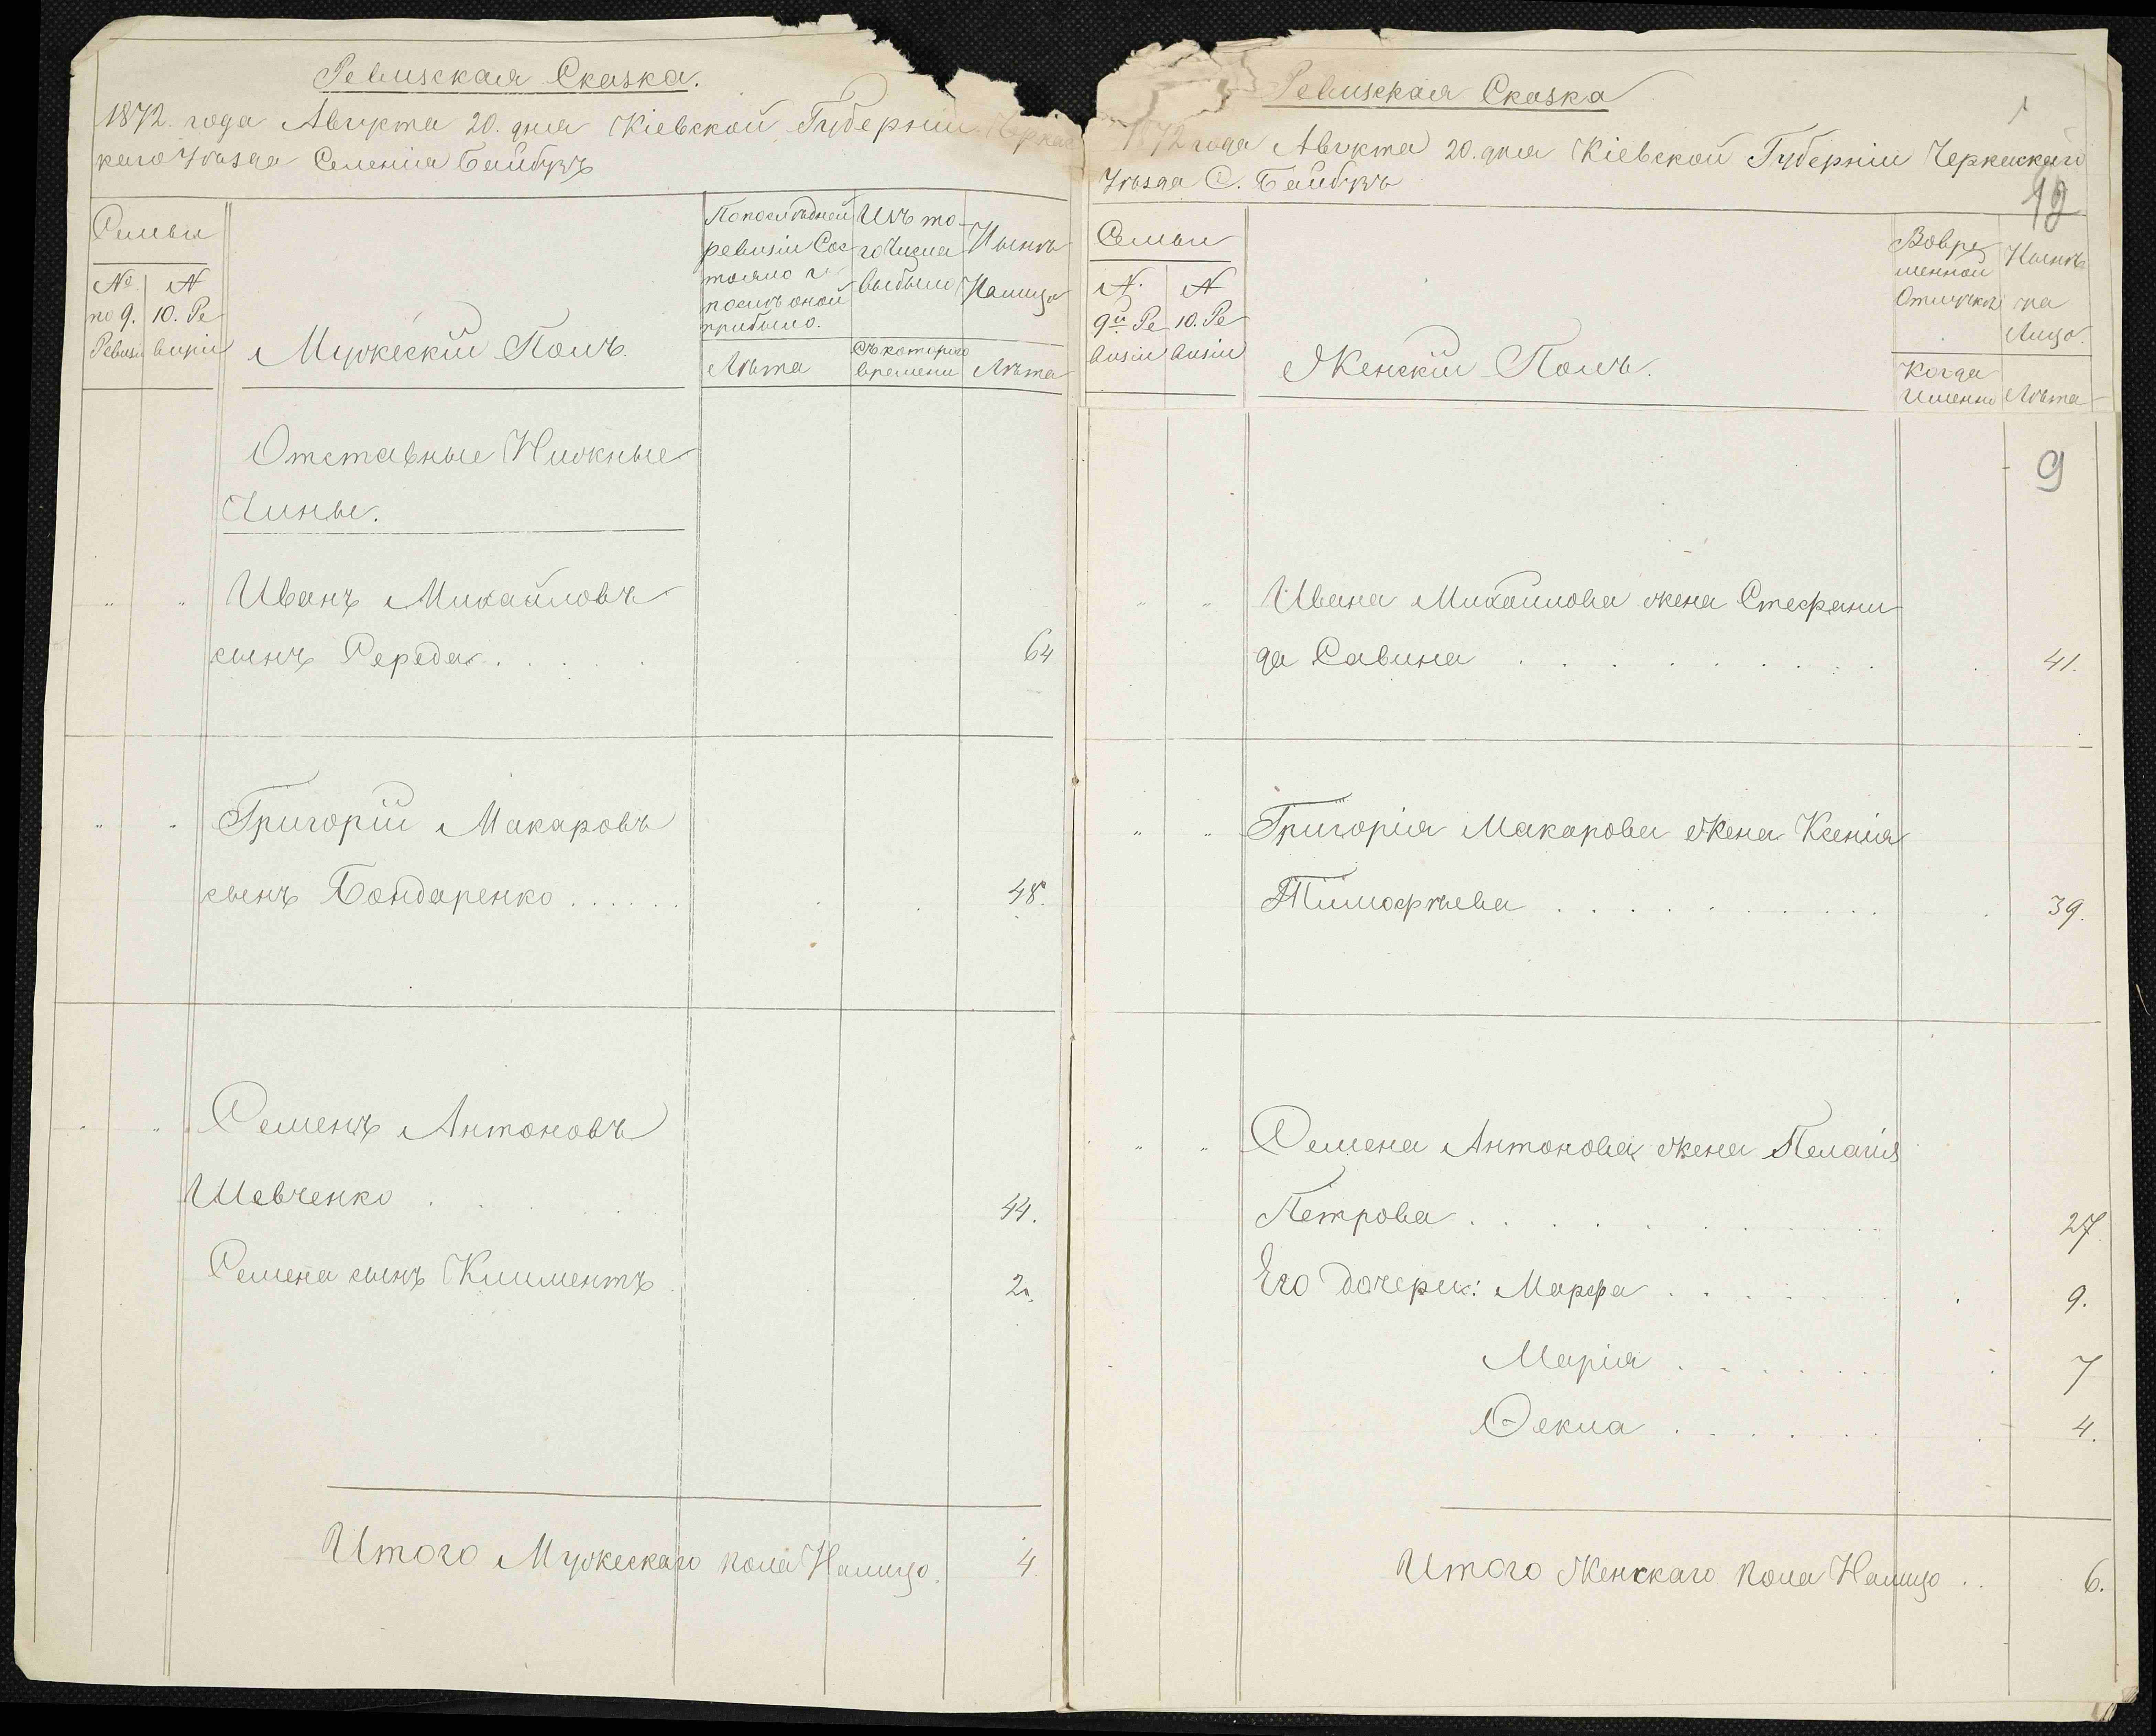 Ревизская Сказка.
1872. года Августа 20. дня Кіевской Губерніи Черкас
каго Уѣзда Селенія Байбузъ
Семьи
№ по 9. Ревизіи
№ 10. Ре визіи
Мужескій Полъ.
По последней ревизіи Сос тояло и послѣ оной прибыло.
Изъ то го числа выбыло
Нынѣ Налицо
Лѣта
Съ котораго времени
Лѣта
Отставные Нижные
Чины.
" " Иванъ Михайловъ
сынъ Середа . . . . . 64
" " Григорій Макаровъ
сынъ Бондаренко . . . . . . 48.
" " Семенъ Антоновъ
Шевченко . . . . 44.
Семена сынъ Климентъ 2.
Итого Мужескаго пола Налицо. 4.
Ревизская Сказка
1872 года Августа 20. дня Кіевской Губерніи Черкаскаго
Уѣзда С. Байбузъ
12
Семьи
№. 9й Ре визіи
№ 10. Ре визіи
Женскій Полъ.
Вовре менной Отлучкѣ
Нынѣ на Лицо.
Когда Именно
Лѣта
9
" " Ивана Михайлова жена Стефани
да Савина . . . . . . . . . 41.
" " Григорія Макарова Жена Ксенія
Тимофѣева . . . . . . . . . 39.
" " Семена Антонова жена Пелагія
Петрова . . . . . . . . . 27
Его дочери: Марфа . . . . . . 9.
Марія . . . . . . 7
Ѳекла . . . . . . 4.
Итого Женскаго пола Налицо . . 6.